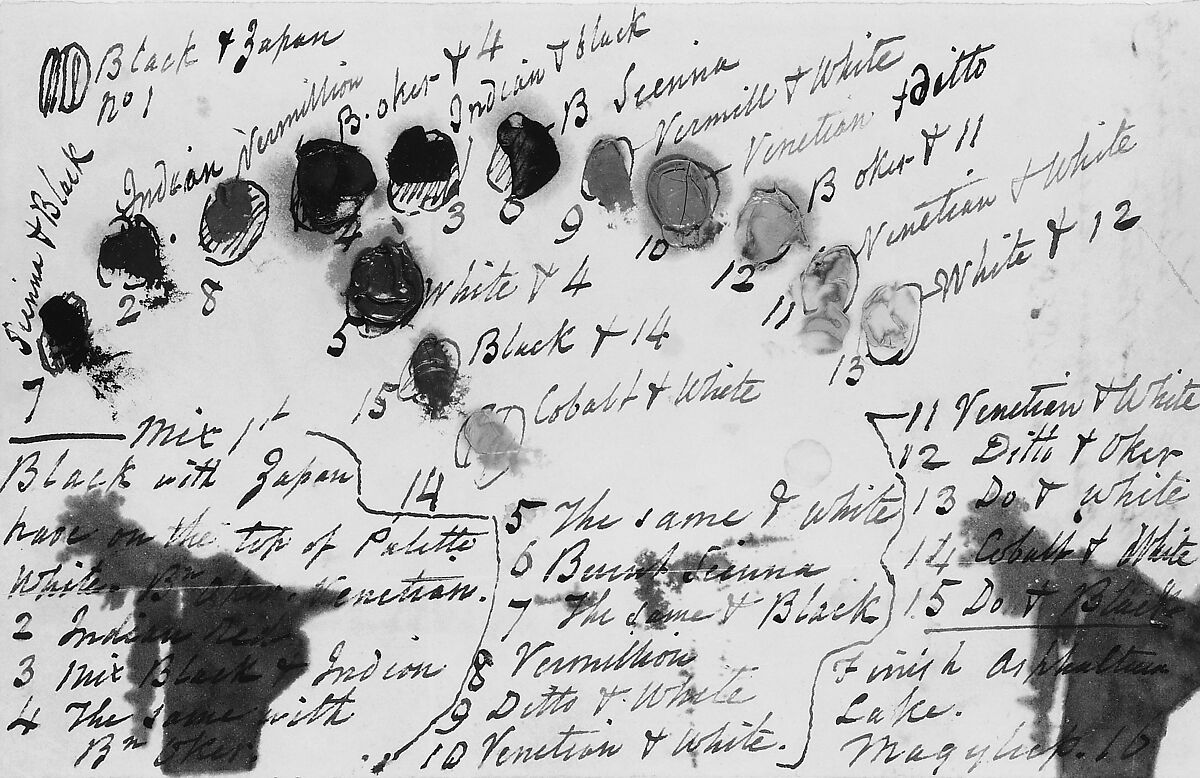 Black & Japan
No 1
Sienna & Black
7
Indian
2
Vermillion
8
B. oker & 4
4
Indian & black
3
B Sienna
6
Vermill & White
9
Venetian & ditto
10
B oker & 11
12
Venetian & White
11
White & 12
13
White & 4
5
Black & 14
15
Cobalt & White
14
Mix 1st
Black with Japan
have on the top of Palette
White. Bn Oker. Venetian.
2 Indian Red
3 Mix Black & Indian
4 The same with
Bn Oker.
5 The same & white
6 Burnt Sienna
7 The same & Black
8 Vermillion
9 Ditto & White
10 Venetian & White.
11 Venetian & White
12 Ditto & Oker
13 Do & White
14 Cobalt & White
15 Do & Black
Finish Asphaltum
Lake.
Magylick.